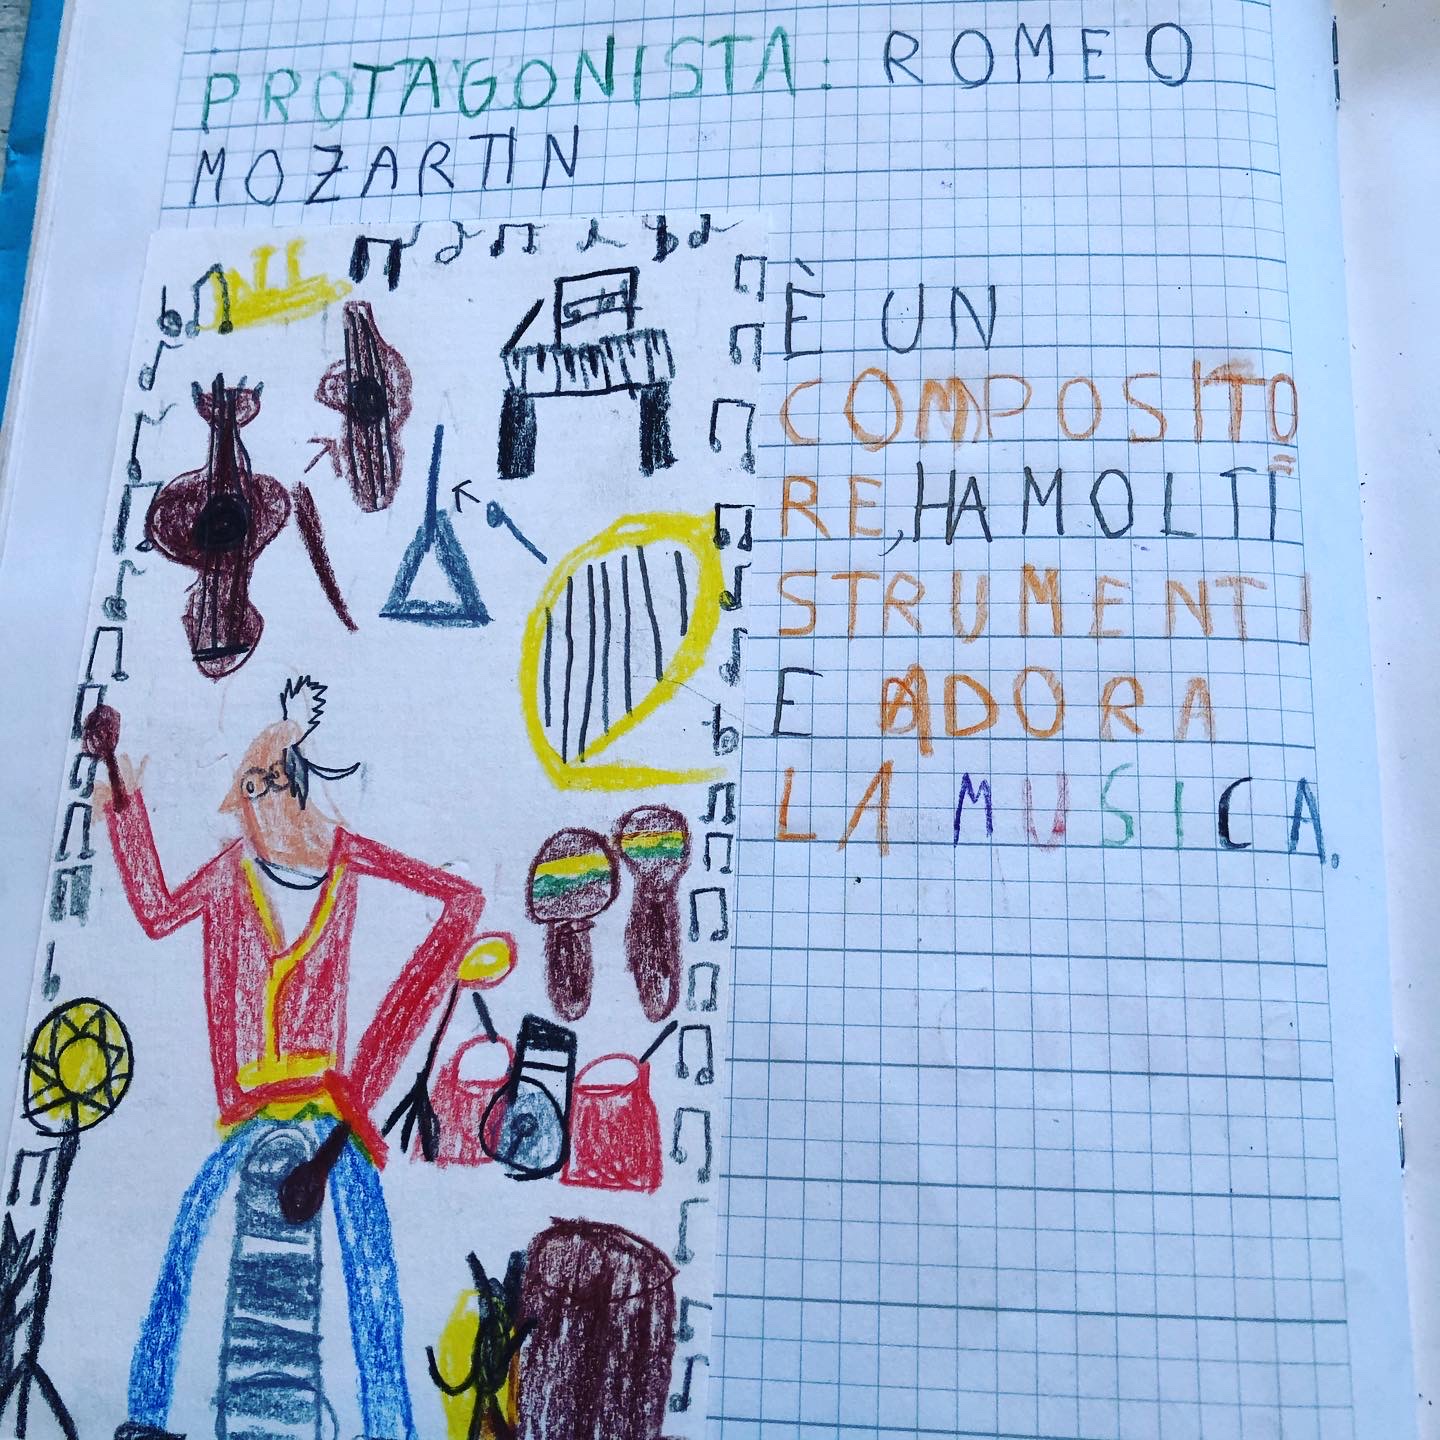 PROTAGONISTA: ROMEO
MOZARTIN
È UN
COMPOSITO
RE, HA MOLTI
STRUMENTI
E ADORA
LA MUSICA.